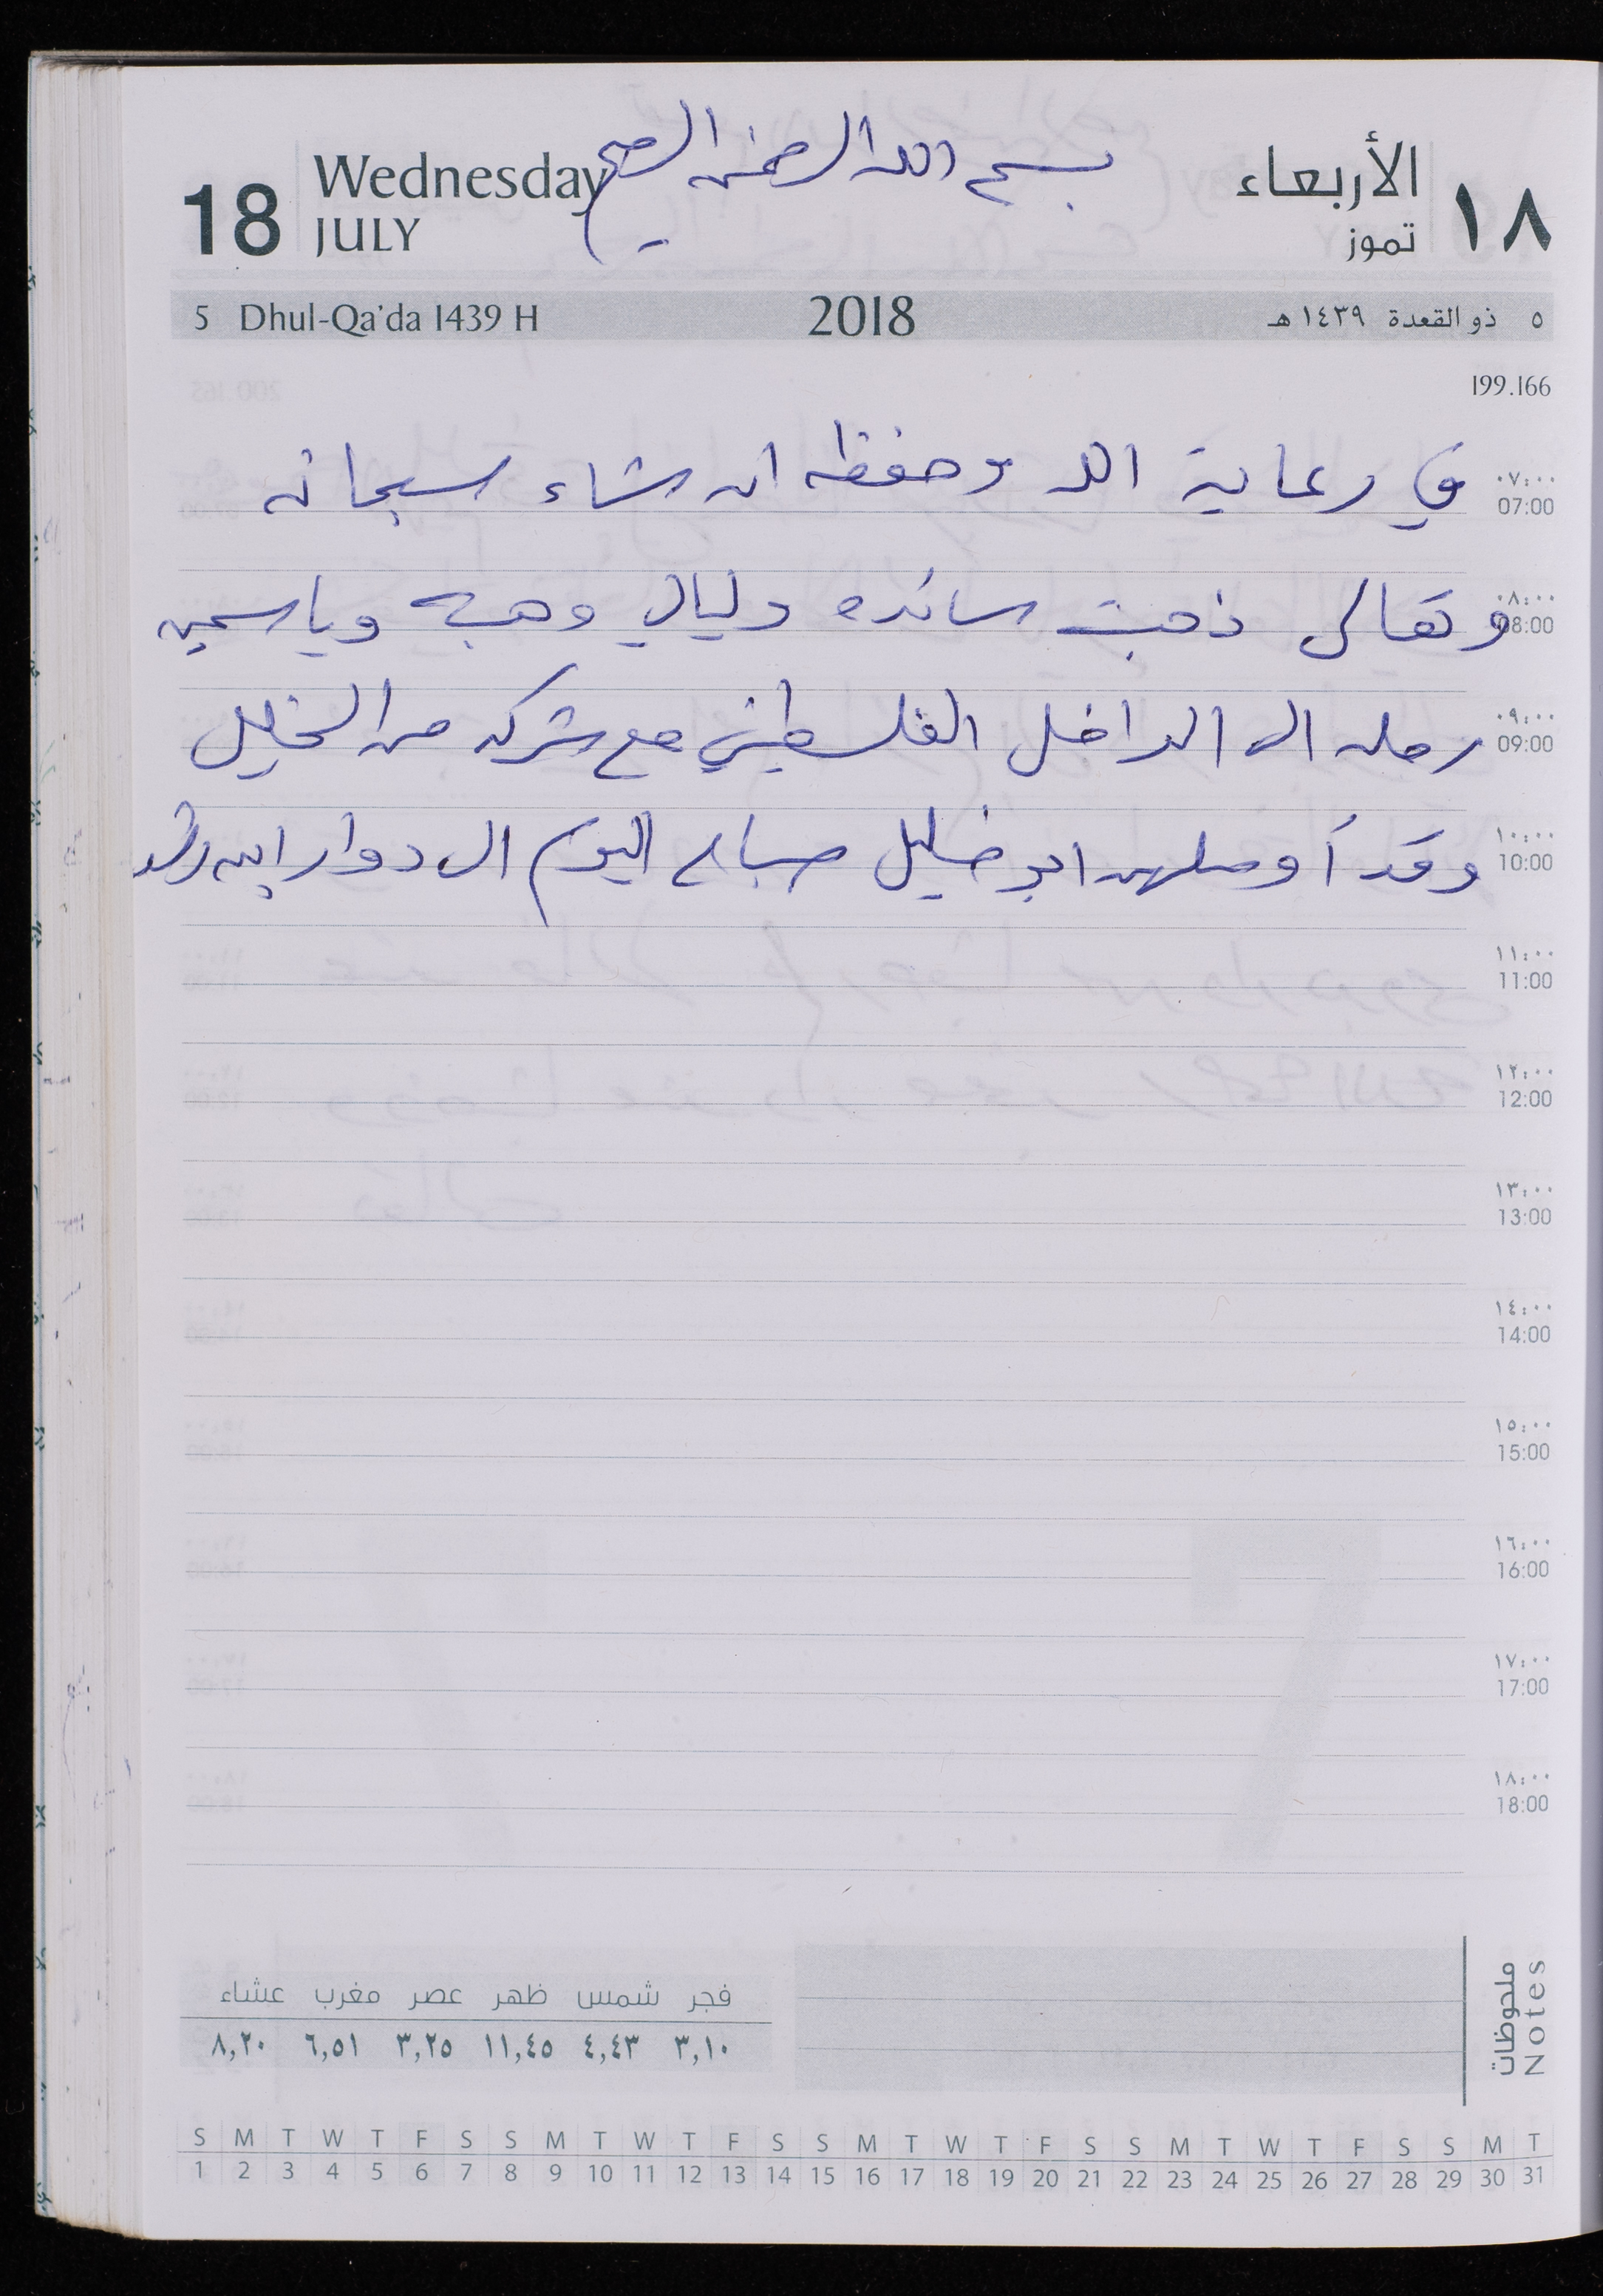 بسم الله الرحمن الرحيم
18 Wednesday JULY
الأربعاء ١٨
تموز
5 Dhul-Qa'da 1439 H 2018 ٥ ذو القعدة ١٤٣٩ هـ
199.166
في رعاية الله وحفظه ان شاء سبحانه
٠٧:٠٠
07:00
وتعالى ذهبت سائده وليالي وهبه وياسمين
٠٨:٠٠
08:00
رحله الى الداخل الفلسطيني مع شركه من الخليل
٠٩:٠٠
09:00
وقد أوصلهن ابو خليل صباح اليوم الى دوار ابن رشد
١٠:٠٠
10:00
١١:٠٠
11:00
١٢:٠٠
12:00
١٣:٠٠
13:00
١٤:٠٠
14:00
١٥:٠٠
15:00
١٦:٠٠
16:00
١٧:٠٠
17:00
١٨:٠٠
18:00
ملحوظات
Notes
فجر شمس ظهر عصر مغرب عشاء
٣,١٠ ٤,٤٣ ١١,٤٥ ٣,٢٥ ٦,٥١ ٨,٢٠
S M T W T F S S M T W T F S S M T W T F S S M T W T F S S M T
1 2 3 4 5 6 7 8 9 10 11 12 13 14 15 16 17 18 19 20 21 22 23 24 25 26 27 28 29 30 31